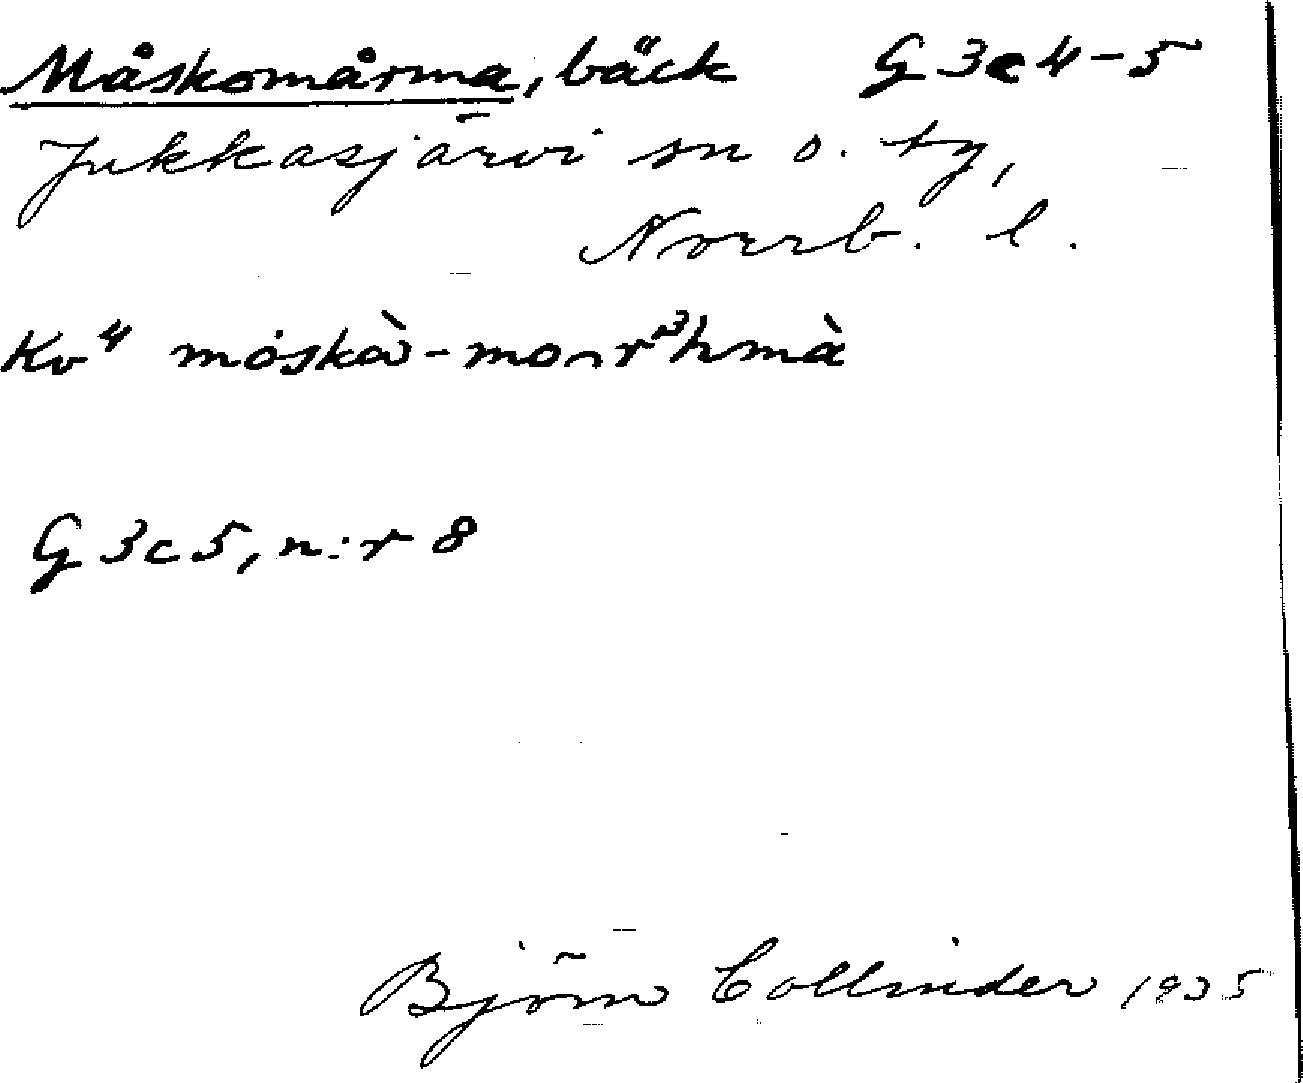 Måskomårma, bäck G 3c 4-5
Jukkasjärvi sn o. tg,
Norrb. l.
Kv⁴ móskɑ̀ - mo
G 3c5, n:r 8
Björn Collinder 1935